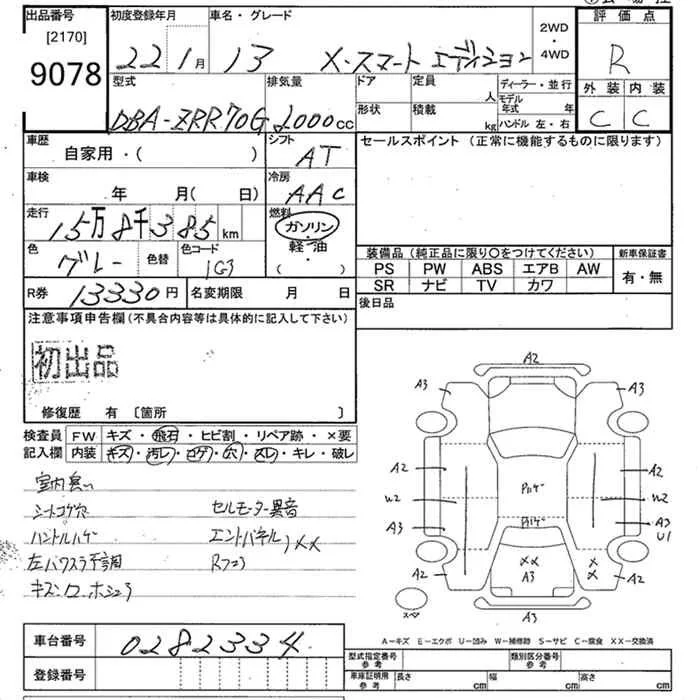 出品番号
[2170]
9078
初度登録年月
22 1月
車名・グレード
13 X-スマートエディション
2WD
・
4WD
評価点
R
外装 内装
C C
型式
DBA-ZRR70G
排気量
2000cc
ドア
形状
定員 人
積載 kg
ディーラー・並行
モデル年式 年
ハンドル 左・右
車歴
自家用・( )
シフト
AT
セールスポイント (正常に機能するものに限ります)
車検
年 月(日)
冷房
AAC
走行
15万8千385km
燃料
ガソリン・
軽油
( )
色
グレー
色替
色コード
1G3
装備品 (純正品に限り○をつけてください)
PS PW ABS エアB AW
SR ナビ TV カワ
新車保証書
有・無
R券 13330円
名変期限 月 日
後日品
注意事項申告欄(不具合内容等は具体的に記入して下さい)
初出品
修復歴 有 〔箇所 〕
検査員
記入欄
FW キズ・飛石・ヒビ割・リペア跡・×要
内装 キズ・汚レ・コゲ・穴・スレ・キレ・破レ
室内臭い
シートコゲ穴
セルモーター異音
ハンドルハゲ
エンドパネル)××
左パワスラ不調
Rフロア
A2
A3
A3
A2
A2
W2
W2
A3
A3
U1
A2
A2
××
A3
××
A3
スペア
A-キズ E-エクボ U-凹み W-補修跡 S-サビ C-腐食 XX-交換済
車台番号
0282334
登録番号
型式指定番号
参考
類別区分番号
参考
車庫証明用
参考
長さ cm
幅 cm
高さ cm